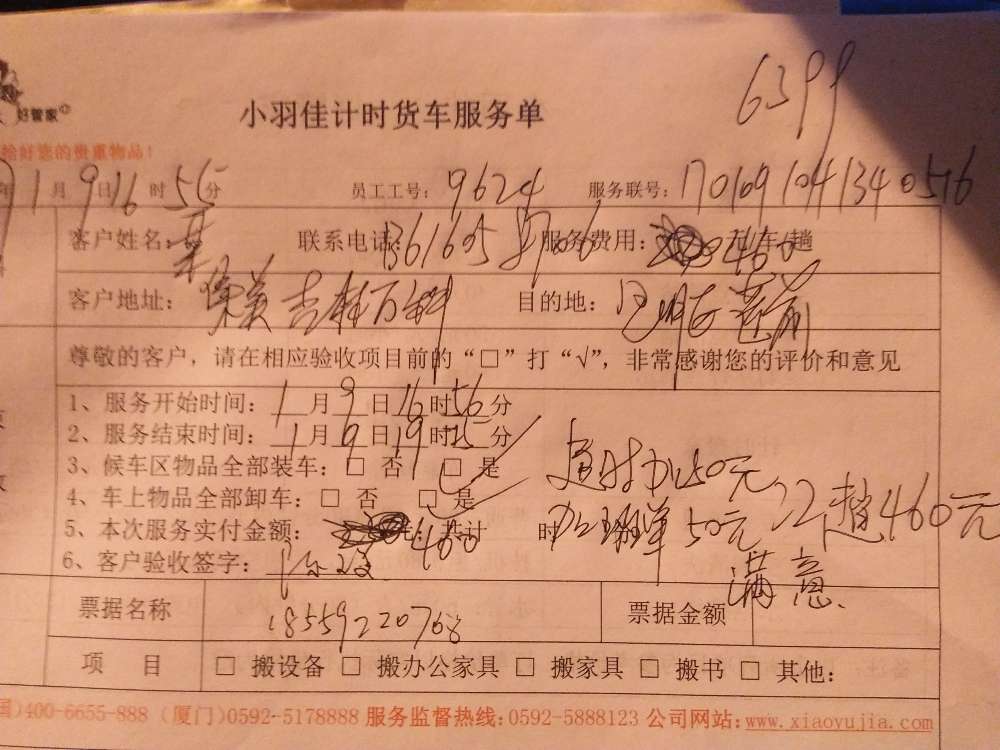 6399
好管家
小羽佳计时货车服务单
给好您的贵重物品！
年1月9日16时55分 员工工号：9624 服务联号：1701091041340516
客户姓名：叶 联系电话： 服务费用：460 元/车/趟
客户地址： 目的地：
尊敬的客户，请在相应验收项目前的“□”打“√”，非常感谢您的评价和意见
1、服务开始时间：1月9日16时56分
2、服务结束时间：1月9日19时25分
3、候车区物品全部装车：□ 否 □ 是
4、车上物品全部卸车：□ 否 □ 是
超时加50元
5、本次服务实付金额：460 元；共计 时
加班单50元 2趟460元
6、客户验收签字：
满意、
票据名称 18559220768 票据金额
项 目 □ 搬设备 □ 搬办公家具 □ 搬家具 □ 搬书 □ 其他：
国)400-6655-888 (厦门)0592-5178888 服务监督热线：0592-5888123 公司网站：www.xiaoyujia.com